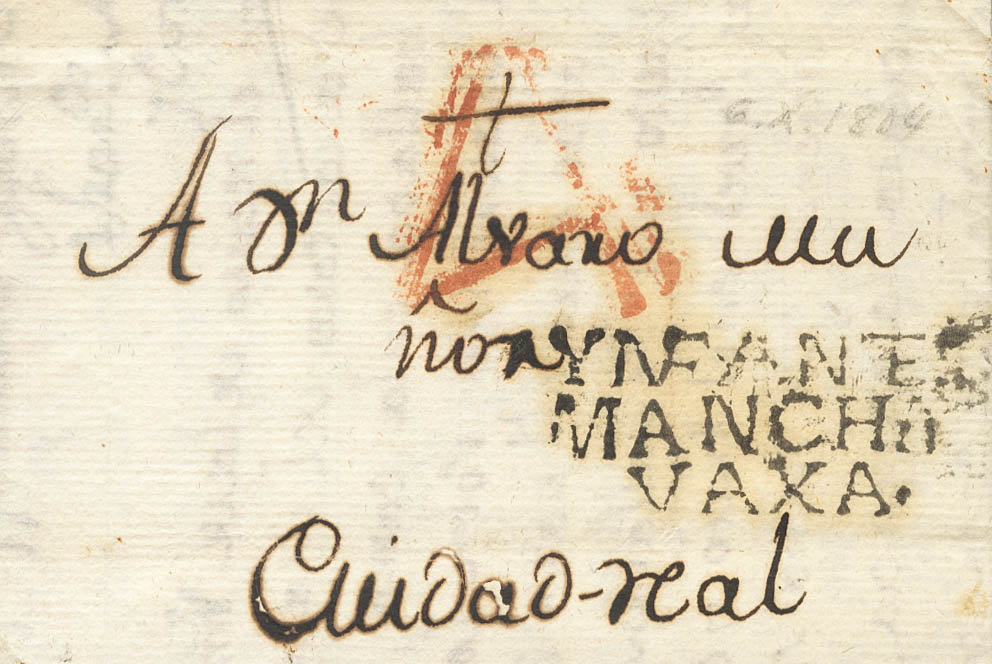 A
G.X. 1804
A Dn Alvaro Mu
ñoz
YNFANTES
MANCHA
VAXA.
Ciudad-real